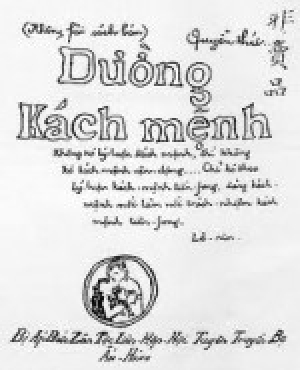 (Không fải sách bán)
Quyển thứ.
非賣品
Dường
Kách mệnh
Không có lý luận kách mệnh, thì không
có kách mệnh vận động.... Chỉ có theo
lý luận kách-mệnh tiền fong, đảng kách-
mệnh mới làm nổi trách-nhiệm kách
mệnh tiền-fong.
Lê-nin.
Bị Áp Bức Zân Tộc Liên Hợp Hội Tuyên Truyền Bộ
Ấn-Hành